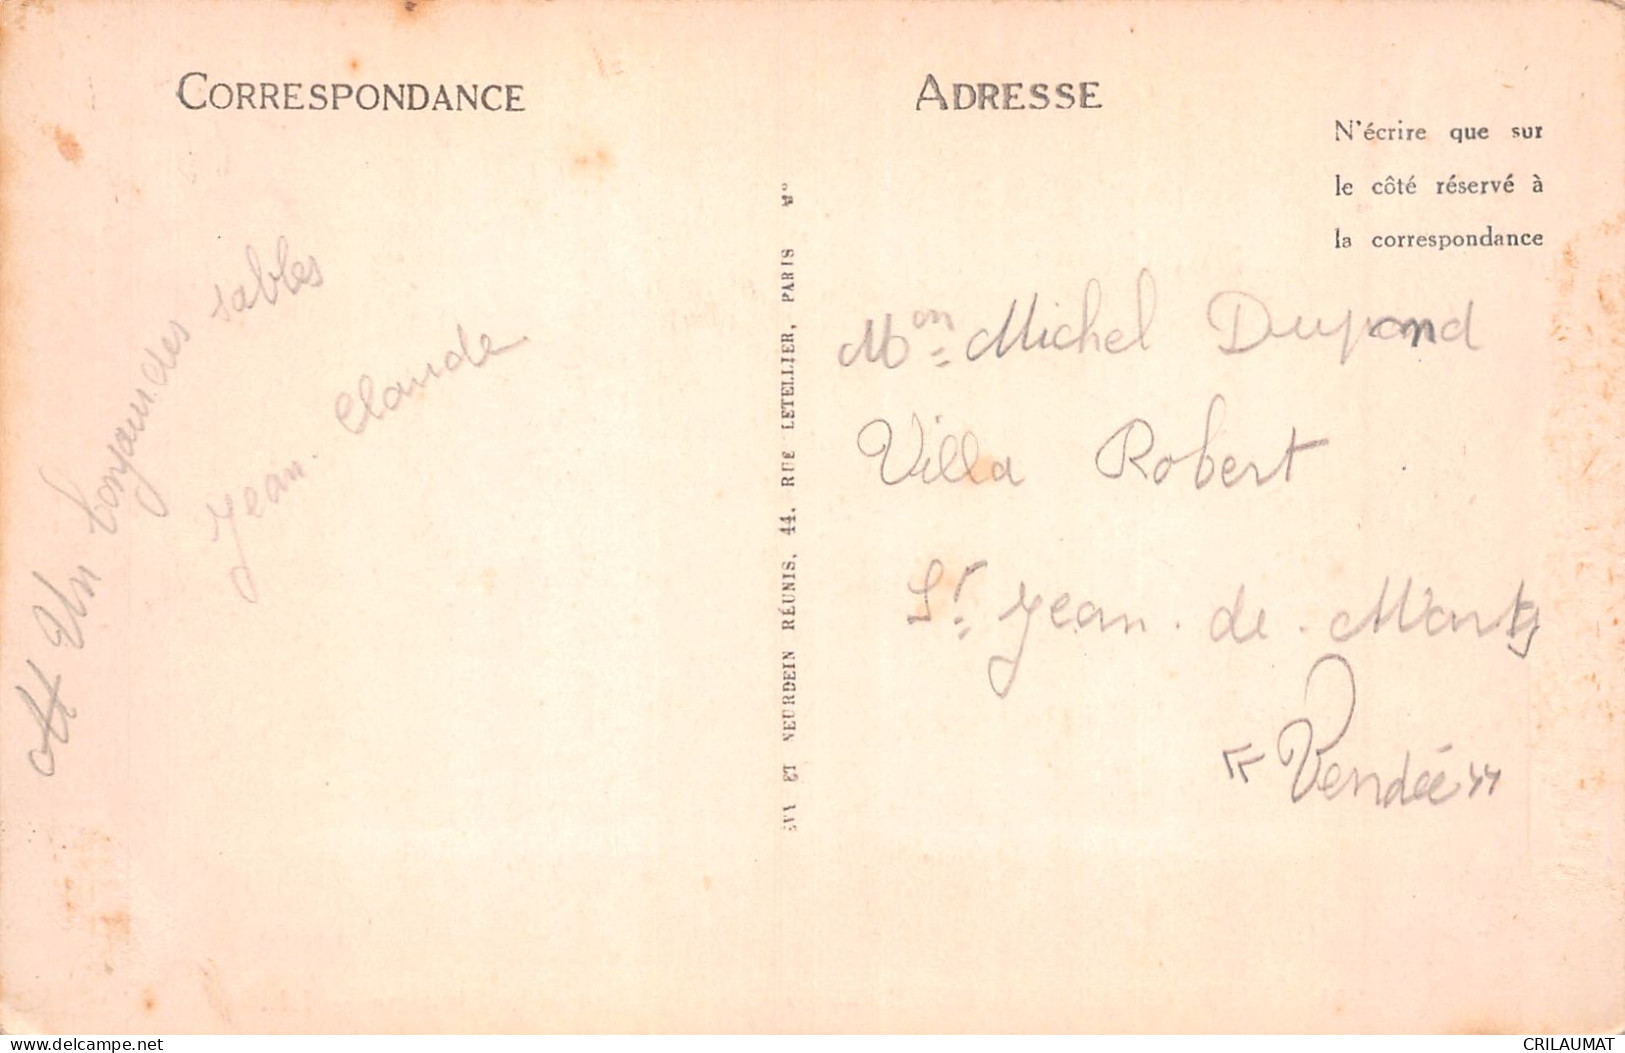 CORRESPONDANCE
Un bonjour des sables
Jean-Claude
EVY ET NEURDEIN RÉUNIS, 44, RUE LETELLIER, PARIS
ADRESSE
N'écrire que sur
le côté réservé à
la correspondance
Mon Michel Dupond
Villa Robert
St Jean-de-Monts
"Vendée"
www.delcampe.net
CRILAUMAT